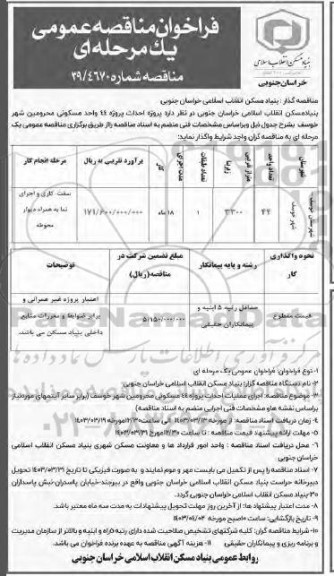 فراخوان مناقصه عمومی
یک مرحله ای
مناقصه شماره ۲۹/۴۶۷۰
بنیاد مسکن انقلاب اسلامی
خراسان جنوبی
مناقصه گذار: بنیاد مسکن انقلاب اسلامی خراسان جنوبی
بنیادمسکن انقلاب اسلامی خراسان جنوبی در نظر دارد پروژه احداث پروژه ۴۴ واحد مسکونی محرومین شهر
خوسف بشرح جدول ذیل وبراساس مشخصات فنی منضم به اسناد مناقصه رااز طریق برگزاری مناقصه عمومی یک
مرحله ای به مناقصه گران واجد شرایط واگذار نماید:
شهرستان
تعداد واحد
زیربنا
تعداد طبقات
مدت اجرای کار
برآورد تقریبی به ریال
مرحله انجام کار
شهرستان خوسف
شهر خوسف
۴۴
۳۳۰۰
۱
۱۸ ماه
۱۷۱/۶۰۰/۰۰۰/۰۰۰
سفت کاری و اجرای
نما به همراه دیوار
محوطه
نحوه واگذاری
کار
رشته و پایه پیمانکار
مبلغ تضمین شرکت در
مناقصه(ریال)
توضیحات
قیمت مقطوع
حداقل رتبه ۵ ابنیه و
پیمانکاران حقیقی
۵/۱۵۰/۰۰۰/۰۰۰
اعتبار پروژه غیر عمرانی و
برابر ضوابط و مقررات منابع
داخلی بنیاد مسکن می باشد.
۱- نوع فراخوان: فراخوان عمومی یک مرحله ای
۲- نام دستگاه مناقصه گزار: بنیاد مسکن انقلاب اسلامی خراسان جنوبی
۳- موضوع مناقصه: اجرای عملیات احداث پروژه ۴۴ مسکونی محرومین شهر خوسف (برابر سایر آیتمهای موردنیاز
براساس نقشه ها و مشخصات فنی اجرایی منضم به اسناد مناقصه)
۴- زمان دریافت اسناد مناقصه: از مورخه ۱۴۰۳/۰۳/۱۳ الی ساعت ۱۴:۳۰ مورخه ۱۴۰۳/۰۳/۱۹
۵- مهلت ارائه پیشنهاد قیمت مناقصه: تا ساعت ۱۴:۳۰ مورخ ۱۴۰۳/۰۳/۳۱
۶- محل دریافت اسناد مناقصه: واحد امور قرارداد ها و معاونت مسکن شهری بنیاد مسکن انقلاب اسلامی
خراسان جنوبی
۷- اسناد مناقصه را پس از تکمیل می بایست مهر و موم نمایند و به صورت فیزیکی تا تاریخ ۱۴۰۳/۰۳/۳۱ تحویل
دبیرخانه حراست بنیاد مسکن انقلاب اسلامی خراسان جنوبی واقع در بیرجند-خیابان پاسداران-نبش پاسداران
۳۰-بنیاد مسکن انقلاب اسلامی خراسان جنوبی گردد.
۸- مدت اعتبار پیشنهاد ها: از آخرین روز مهلت تحویل پیشنهادات به مدت سه ماه معتبر باشد.
۹- تاریخ بازگشایی: ساعت ۱۰ صبح مورخه
۱۰- شرایط مناقصه گران: کلیه شرکتهای تشخیص صلاحیت شده دارای رتبه ابنیه و بالاتر از سازمان مدیریت
و برنامه ریزی و پیمانکاران حقیقی ۱۱- هزینه آگهی مناقصه به عهده برنده فراخوان می باشد.
روابط عمومی بنیاد مسکن انقلاب اسلامی خراسان جنوبی